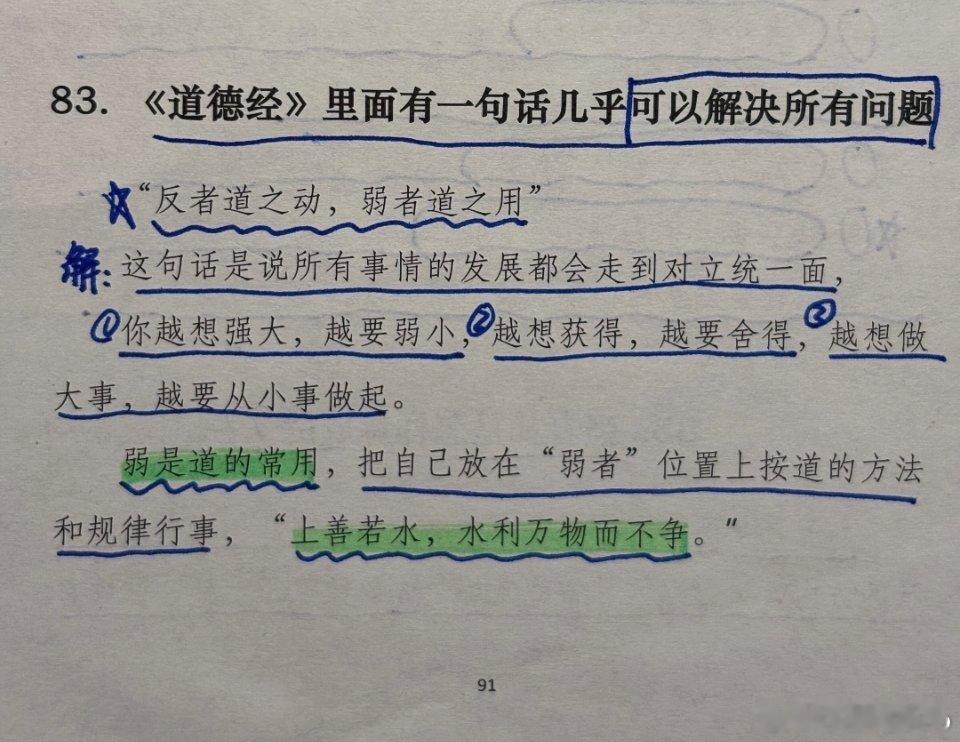 83.《道德经》里面有一句话几乎可以解决所有问题
☆“反者道之动，弱者道之用”
解：这句话是说所有事情的发展都会走到对立统一面，
①你越想强大，越要弱小，②越想获得，越要舍得，③越想做
大事，越要从小事做起。
弱是道的常用，把自己放在“弱者”位置上按道的方法
和规律行事，“上善若水，水利万物而不争。”
91